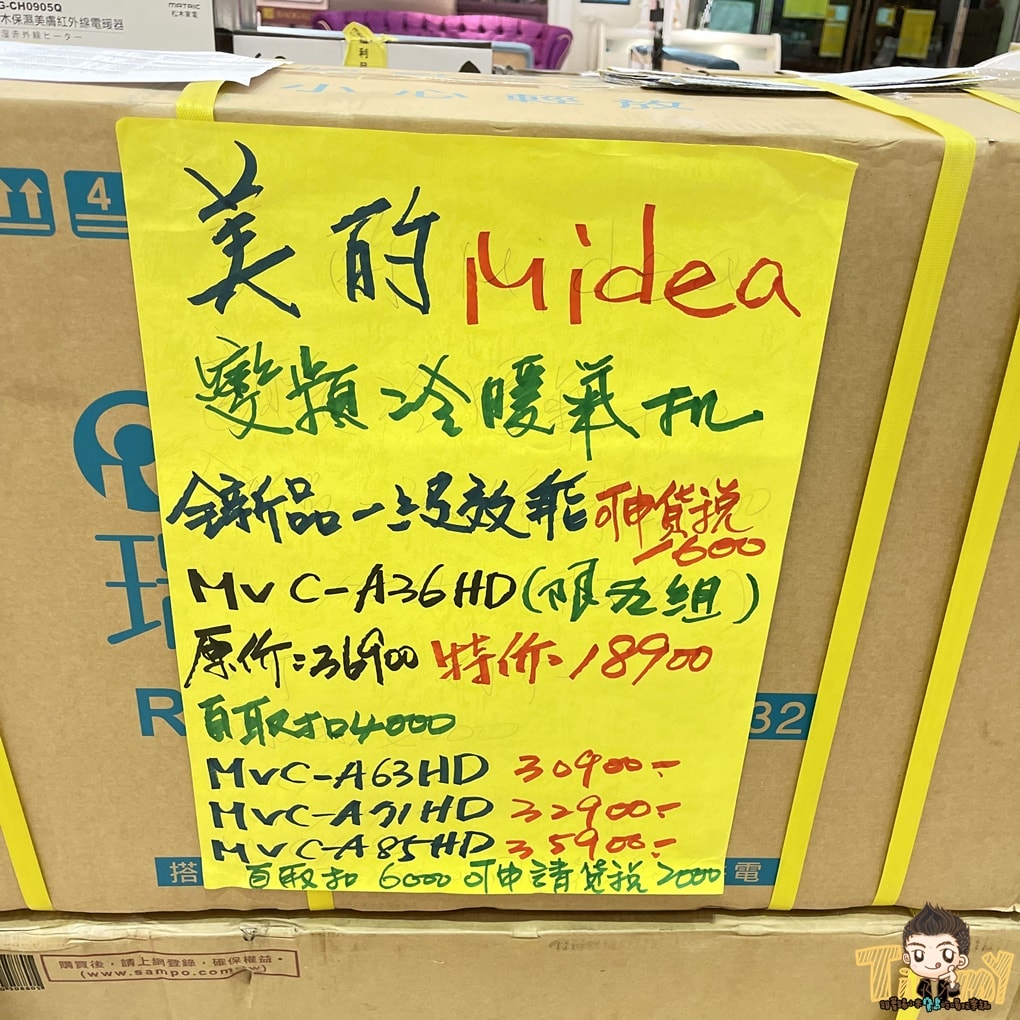 G-CH0905Q
木保濕美膚紅外線電暖器
遠赤外線ヒーター
MATRIC
松木家電
福利品
小心輕放
4
美的 Midea
變頻冷暖氣机
全新品一級效能可申貨稅
1600
MVC-A36HD(限五組)
原价:36900 特价:18900
自取扣4000
MVC-A63HD 30900.-
MVC-A71HD 32900.-
MVC-A85HD 35900.-
自取扣 6000 可申請貨稅 2000
瑞
R
32
搭
電
購買後，請上網登錄，確保權益。
(www.sampo.com.tw)